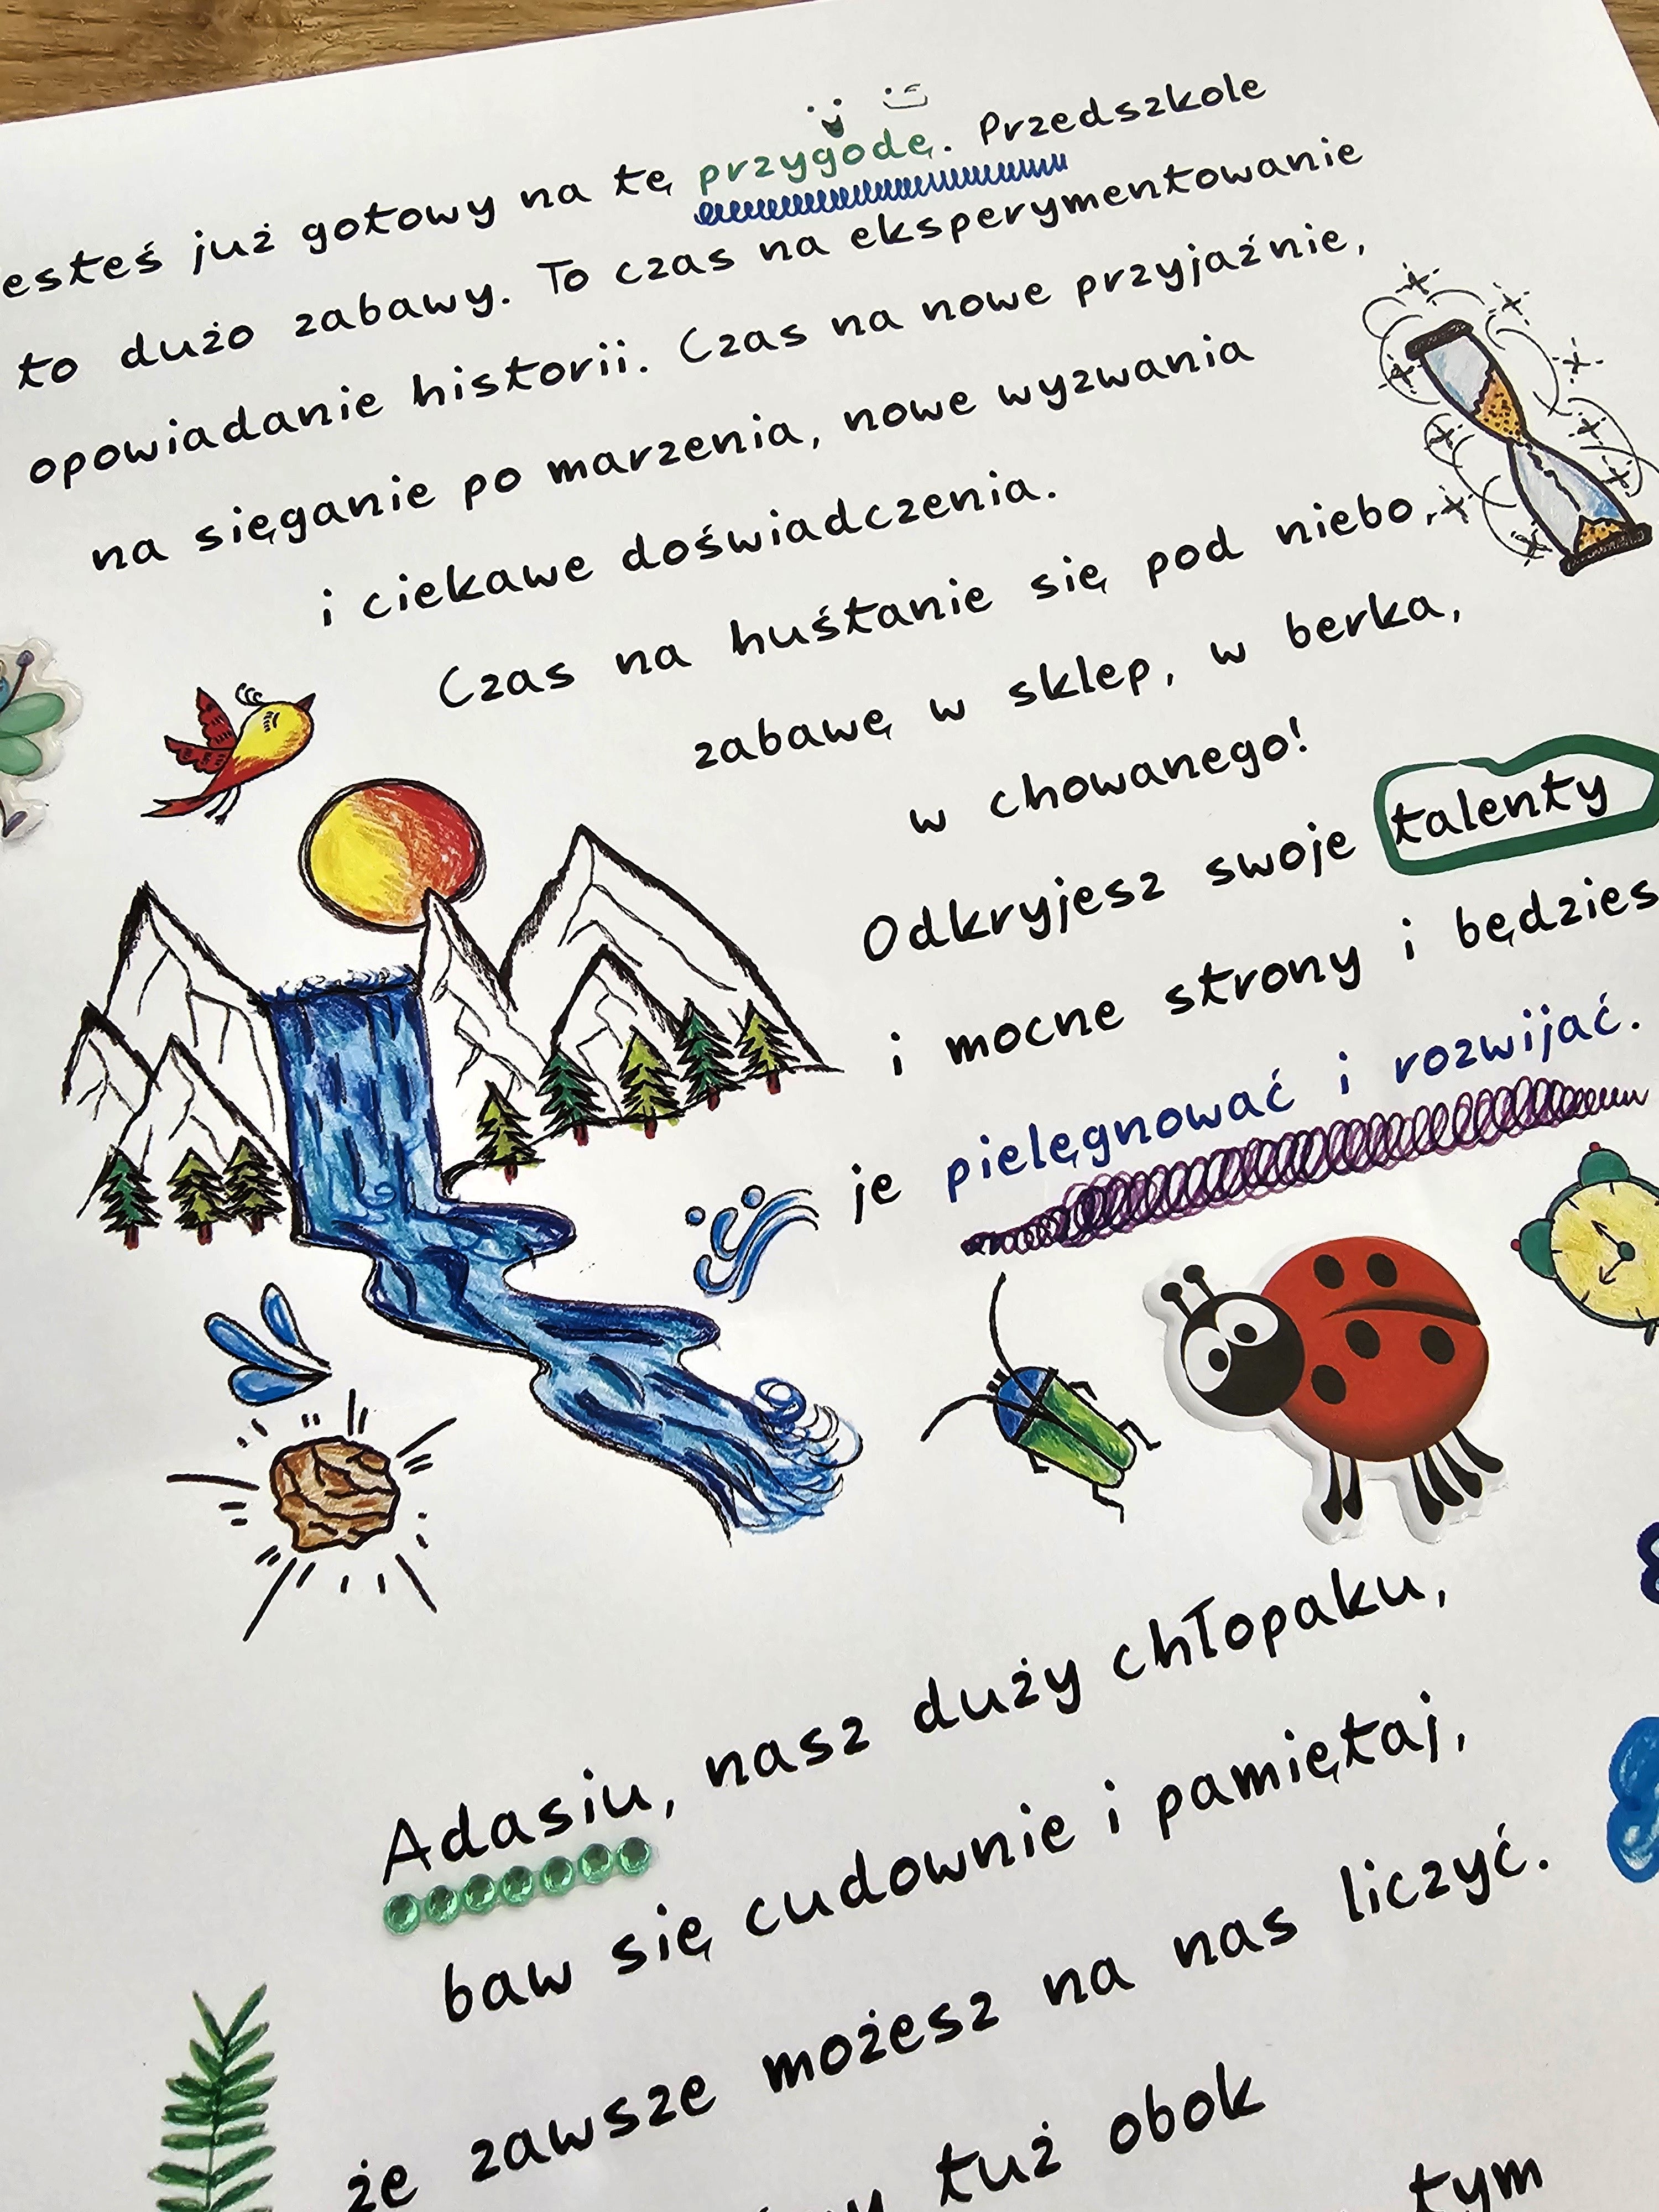 esteś już gotowy na tę przygodę. Przedszkole
to dużo zabawy. To czas na eksperymentowanie
opowiadanie historii. Czas na nowe przyjaźnie,
na sięganie po marzenia, nowe wyzwania
i ciekawe doświadczenia.
Czas na huśtanie się pod niebo,
zabawę w sklep, w berka,
w chowanego!
Odkryjesz swoje talenty
i mocne strony i będzies
je pielęgnować i rozwijać.
Adasiu, nasz duży chłopaku,
baw się cudownie i pamiętaj,
że zawsze możesz na nas liczyć.
tuż obok
tym